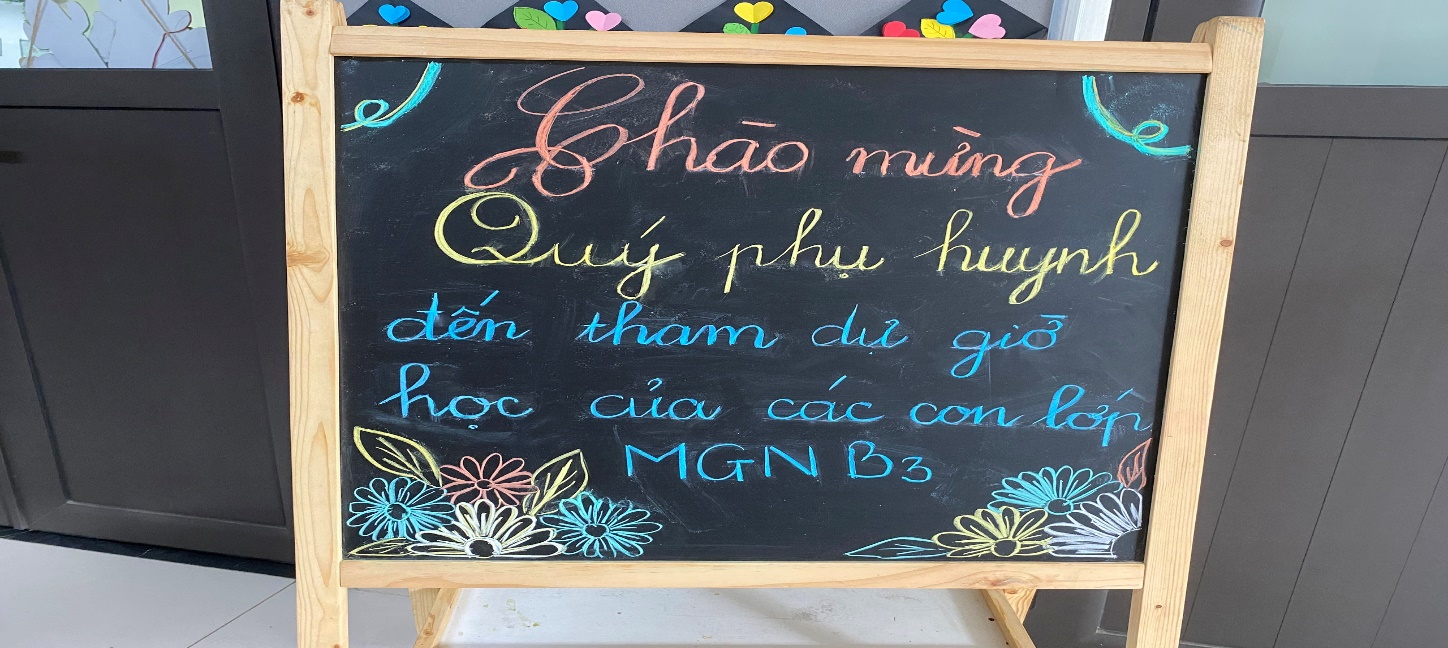 Chào mừng
Quý phụ huynh
đến tham dự giờ
học của các con lớp
MGN B3